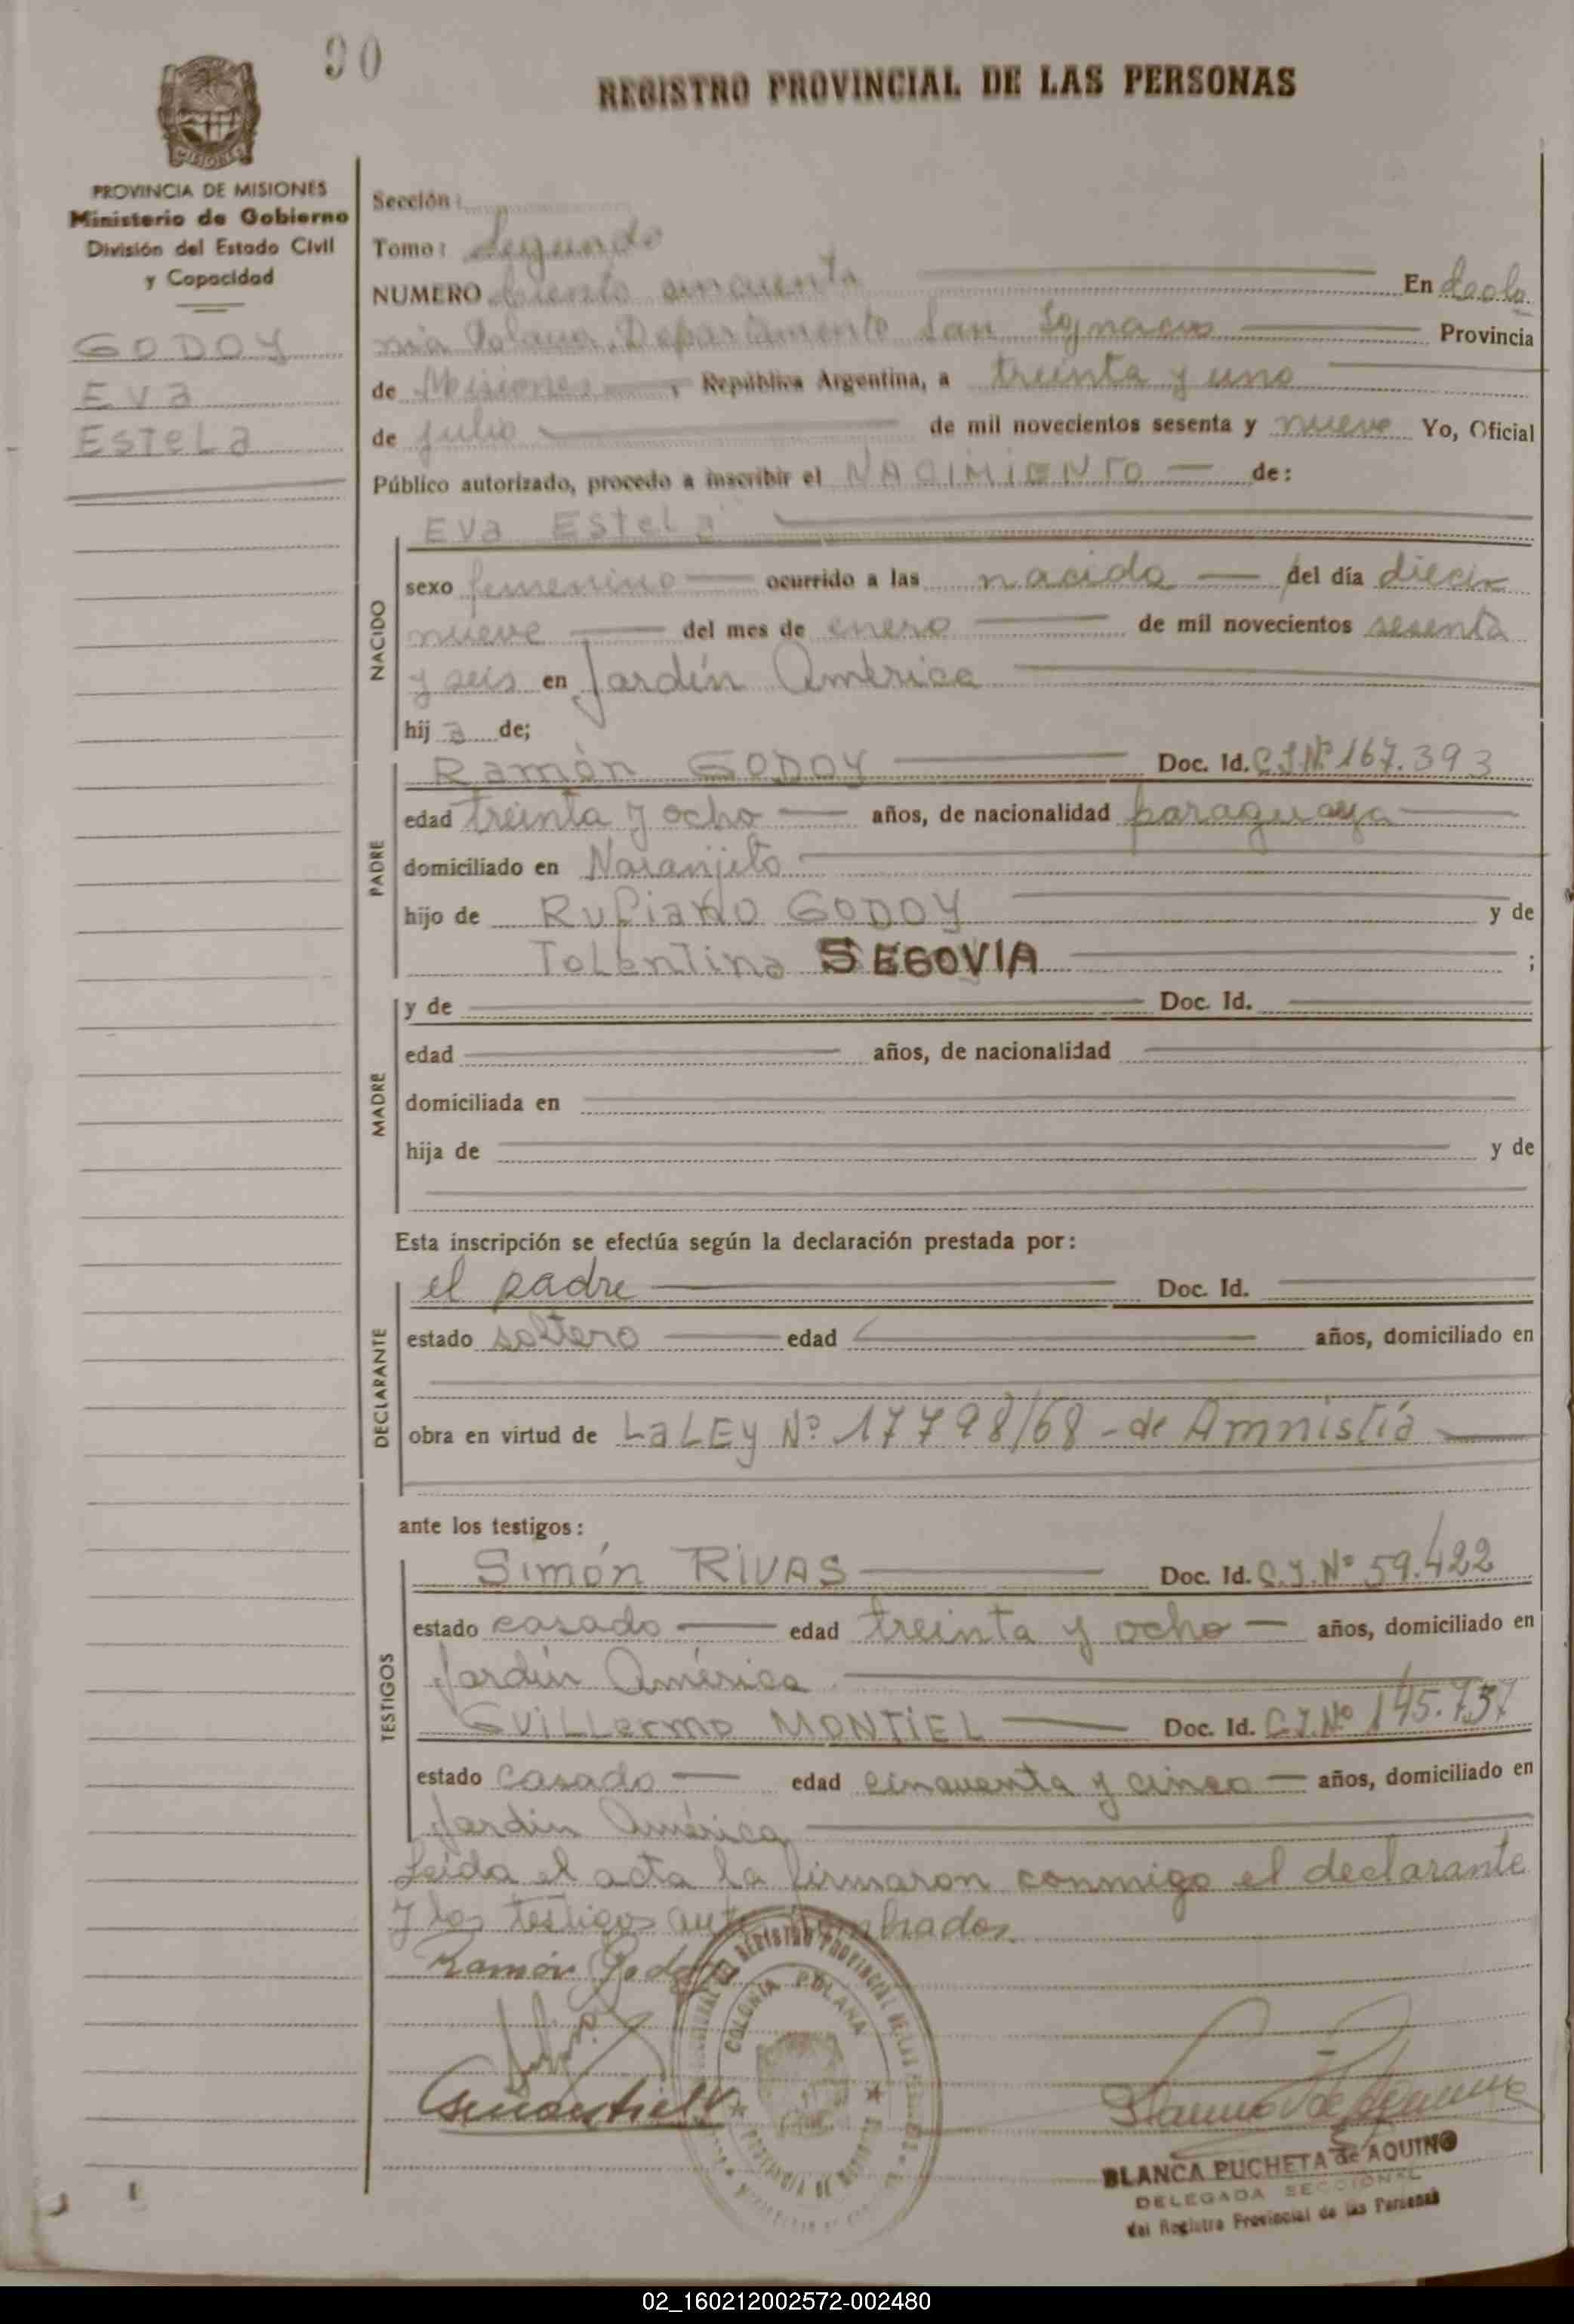 90
REGISTRO PROVINCIAL DE LAS PERSONAS
MISIONES
PROVINCIA DE MISIONES
Ministerio de Gobierno
División del Estado Civil
y Capacidad
GODOY
Eva
Estela
Sección:
Tomo: Segundo
NUMERO Ciento cincuenta En Colo
nia Polana, Departamento San Ignacio Provincia
de Misiones, República Argentina, a treinta y uno
de julio de mil novecientos sesenta y nueve Yo, Oficial
Público autorizado, procedo a inscribir el NACIMIENTO de:
NACIDO
Eva Estela
sexo femenino ocurrido a las nacida del día dieci
nueve del mes de enero de mil novecientos sesenta
y seis en Jardín América
hij a de;
PADRE
Ramón GODOY Doc. Id. C.I.Nº 167.393
edad treinta y ocho años, de nacionalidad paraguaya
domiciliado en Naranjito
hijo de Rufiano GODOY y de
Tolentina SEGOVIA ;
MADRE
y de Doc. Id.
edad años, de nacionalidad
domiciliada en
hija de y de
Esta inscripción se efectúa según la declaración prestada por:
DECLARANTE
el padre Doc. Id.
estado soltero edad años, domiciliado en
obra en virtud de La LEy Nº 17798/68 - de Amnistía
ante los testigos:
TESTIGOS
Simón RIVAS Doc. Id. C.I.Nº 59.422
estado casado edad treinta y ocho años, domiciliado en
Jardín América
Guillermo MONTIEL Doc. Id. C.I.Nº 145.737
estado casado edad cincuenta y cinco años, domiciliado en
Jardín América
Leída el acta la firmaron conmigo el declarante
y los testigos nombrados
Ramón Godoy
REGISTRO PROVINCIAL DE LAS
COLONIA POLANA
PROVINCIA DE
BLANCA PUCHETA de AQUINO
DELEGADA SECCIONAL
del Registro Provincial de las Personas
02_160212002572-002480